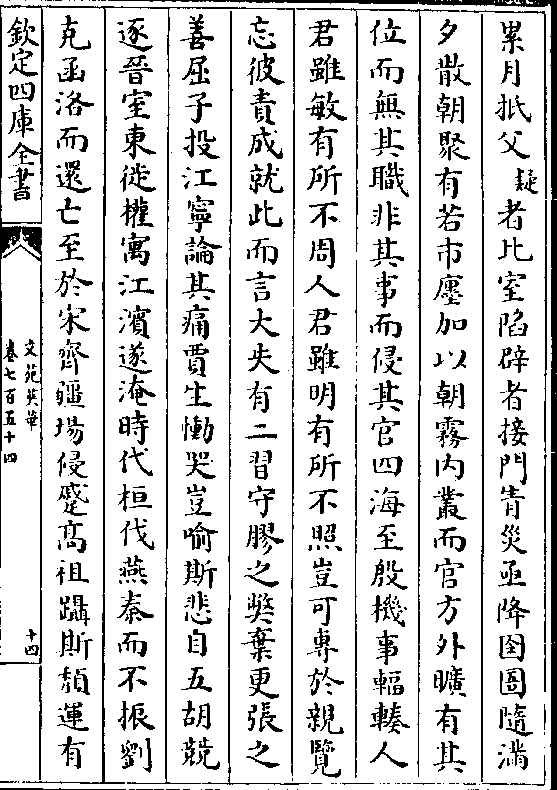 累月抵父疑者比室陷辟者接門眚災亟降囹圄隨滿
夕散朝聚有若市廛加以朝霧内叢而官方外曠有其
位而無其職非其事而侵其官四海至殷機事輻輳人
君雖敏有所不周人君雖明有所不照豈可專於親覽
忘彼責成就此而言大失有二習守膠之弊棄更張之
善屈子投江寧論其痛賈生慟哭豈喻斯悲自五胡競
逐晉室東徙權寓江濱遂淹時代桓伐燕秦而不振劉
克函洛而還亡至於宋齊疆場侵蹙髙祖躡斯頽運有
欽定四庫全書
文苑英華
卷七百五十四
十四